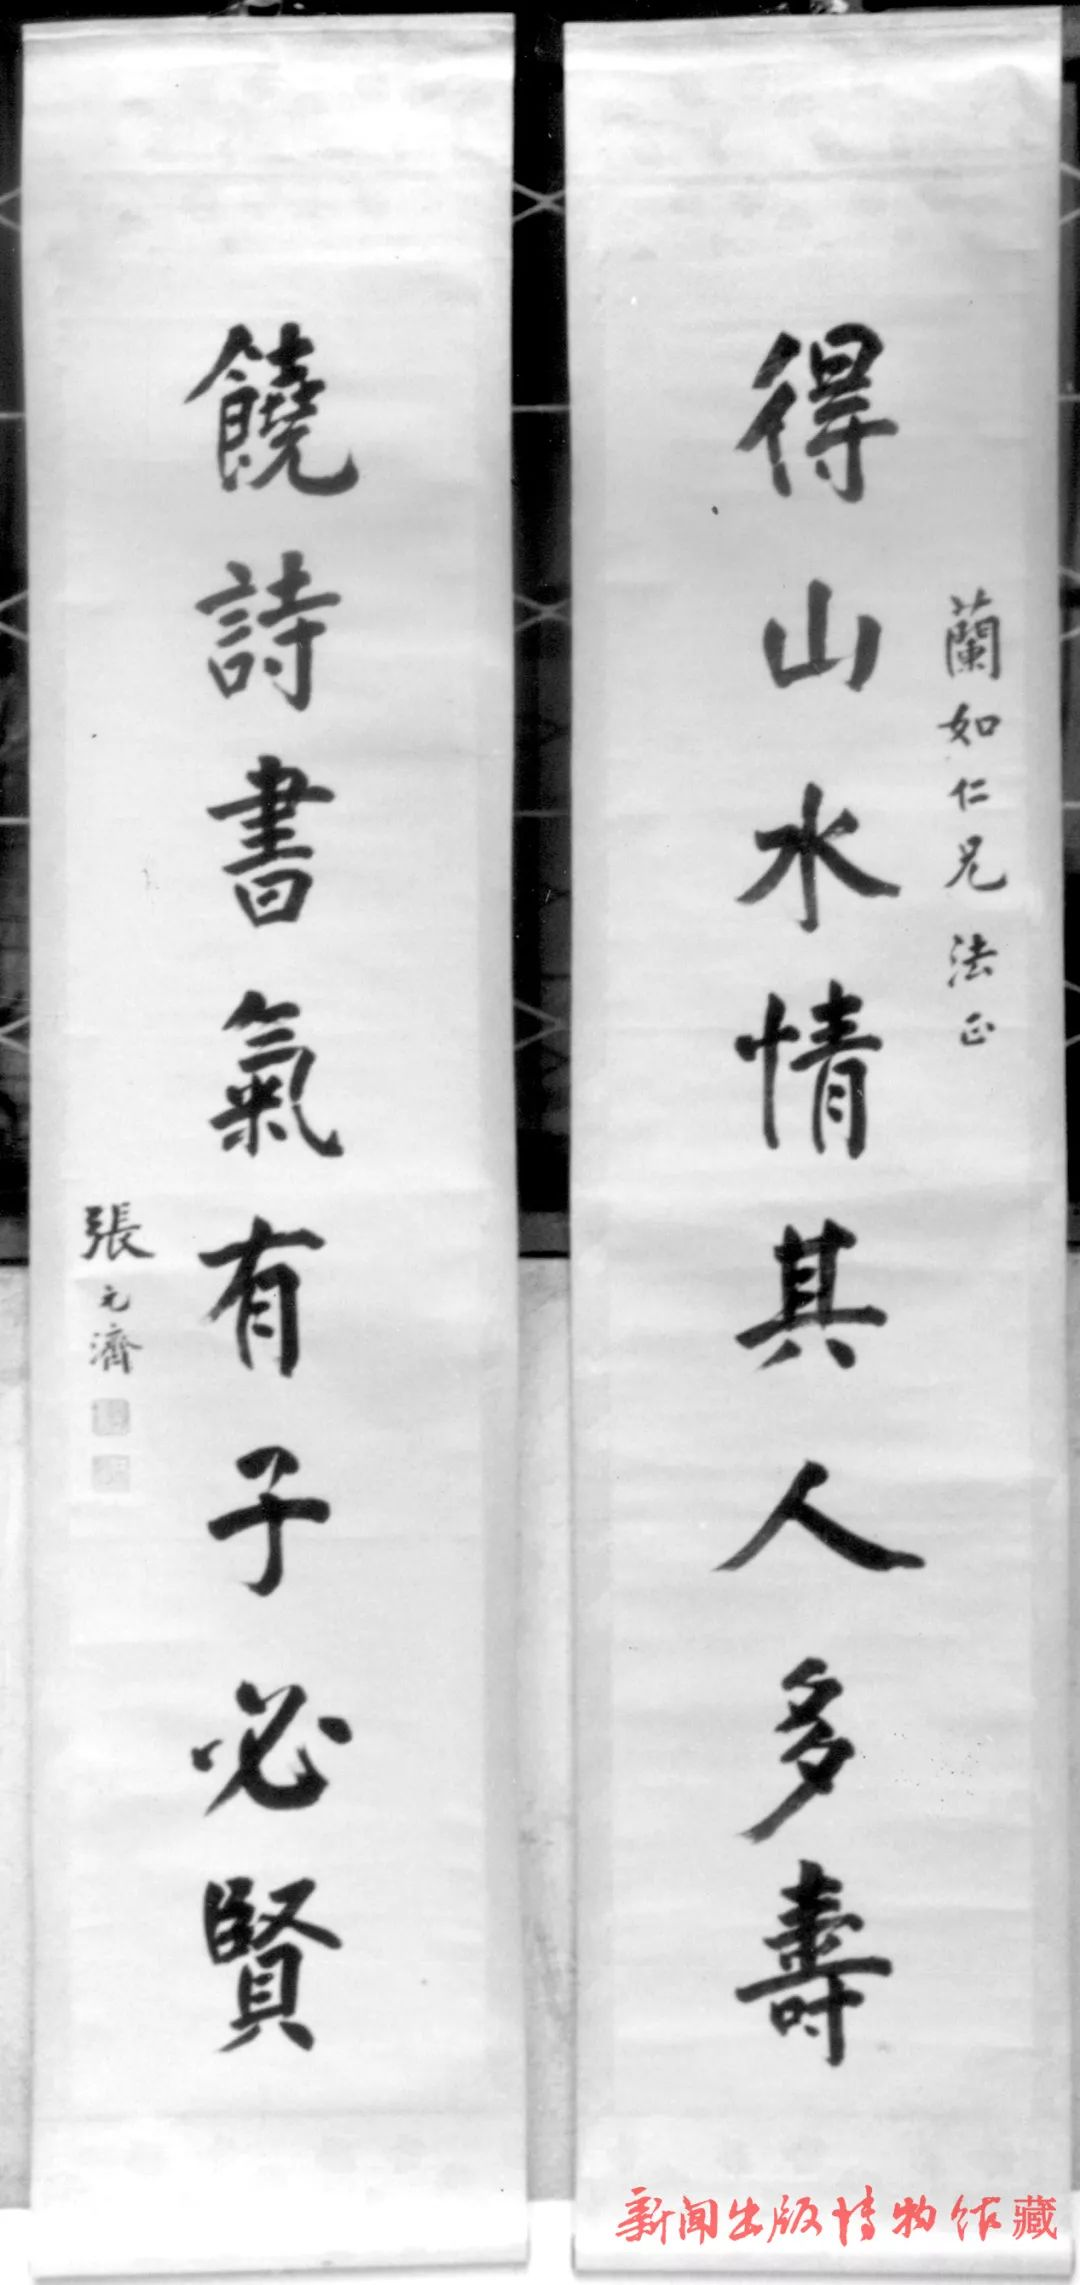 得山水情其人多壽
蘭如仁兄法正
饒詩書氣有子必賢
張元濟
新闻出版博物馆藏